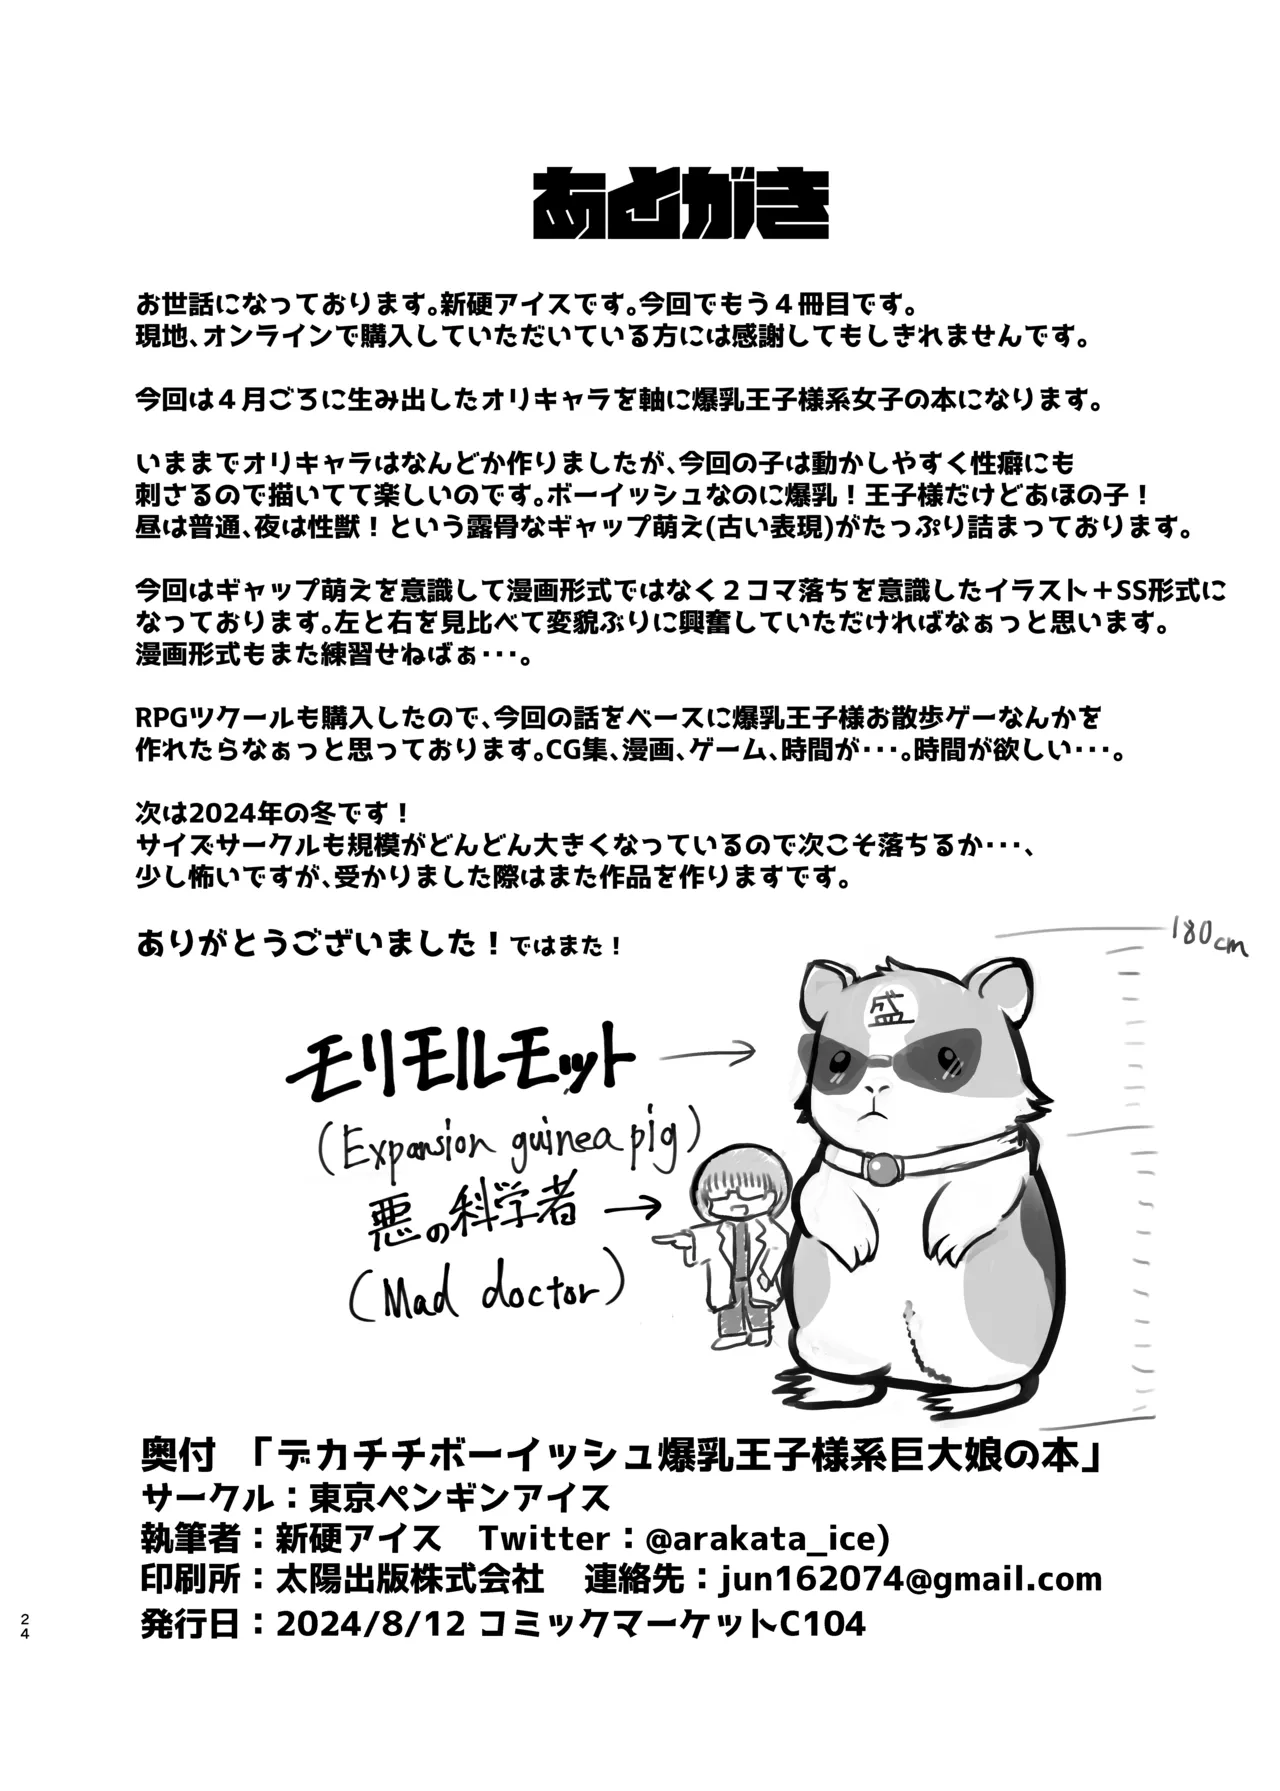 あとがき
お世話になっております。新硬アイスです。今回でもう４冊目です。
現地、オンラインで購入していただいている方には感謝してもしきれませんです。
今回は４月ごろに生み出したオリキャラを軸に爆乳王子様系女子の本になります。
いままでオリキャラはなんどか作りましたが、今回の子は動かしやすく性癖にも
刺さるので描いてて楽しいのです。ボーイッシュなのに爆乳！王子様だけどあほの子！
昼は普通、夜は性獣！という露骨なギャップ萌え(古い表現)がたっぷり詰まっております。
今回はギャップ萌えを意識して漫画形式ではなく２コマ落ちを意識したイラスト＋SS形式に
なっております。左と右を見比べて変貌ぶりに興奮していただければなぁっと思います。
漫画形式もまた練習せねばぁ･･･。
RPGツクールも購入したので、今回の話をベースに爆乳王子様お散歩ゲーなんかを
作れたらなぁっと思っております。CG集、漫画、ゲーム、時間が･･･。時間が欲しい･･･。
次は2024年の冬です！
サイズサークルも規模がどんどん大きくなっているので次こそ落ちるか･･･、
少し怖いですが、受かりました際はまた作品を作りますです。
ありがとうございました！ではまた！
180cm
盛
モリモルモット
(Expansion guinea pig)
悪の科学者
(Mad doctor)
奥付　「デカチチボーイッシュ爆乳王子様系巨大娘の本」
サークル：東京ペンギンアイス
執筆者：新硬アイス　Twitter：@arakata_ice)
印刷所：太陽出版株式会社　連絡先：jun162074@gmail.com
発行日：2024/8/12 コミックマーケットC104
24